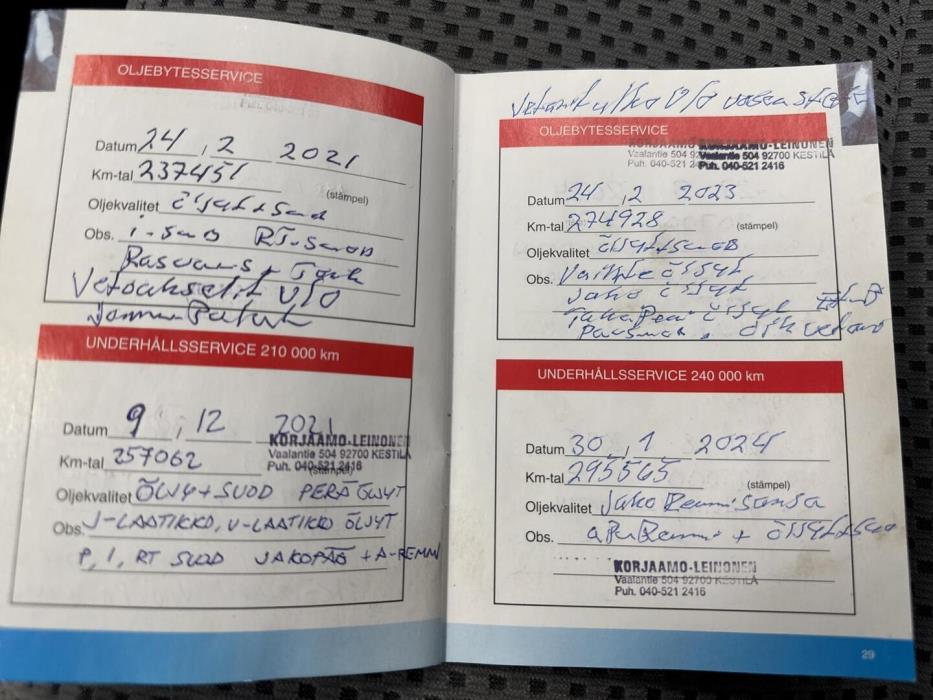 OLJEBYTESSERVICE
Datum 24 , 2 2021
Km-tal 237451
(stämpel)
Oljekvalitet öljyt + suod
Obs. i-suod RI-suod
Vetoakselit V/O
UNDERHÅLLSSERVICE 210 000 km
Datum 9 , 12 2021
KORJAAMO-LEINONEN
Vaalantie 504 92700 KESTILÄ
Km-tal 257062
Puh. 040-521 2416
(stämpel)
Oljekvalitet ÖLJY + SUOD PERÄ ÖLJYT
Obs. J-LAATIKKO, V-LAATIKKO ÖLJYT
P, I, RT SUOD JAKOPÄÄ + A-REMMI
OLJEBYTESSERVICE
KORJAAMO-LEINONEN
Vaalantie 504 92700 KESTILÄ
Puh. 040-521 2416
Datum 24 , 2 2023
Km-tal 274928
(stämpel)
Oljekvalitet öljyt + suod
Obs. Vaihde öljyt
Jako öljyt
Takaperä öljyt
UNDERHÅLLSSERVICE 240 000 km
Datum 30 , 1 2024
Km-tal 295565
(stämpel)
Oljekvalitet Jako Remmi
Obs. apu Remmi + öljyt + suod
KORJAAMO-LEINONEN
Vaalantie 504 92700 KESTILÄ
Puh. 040-521 2416
29